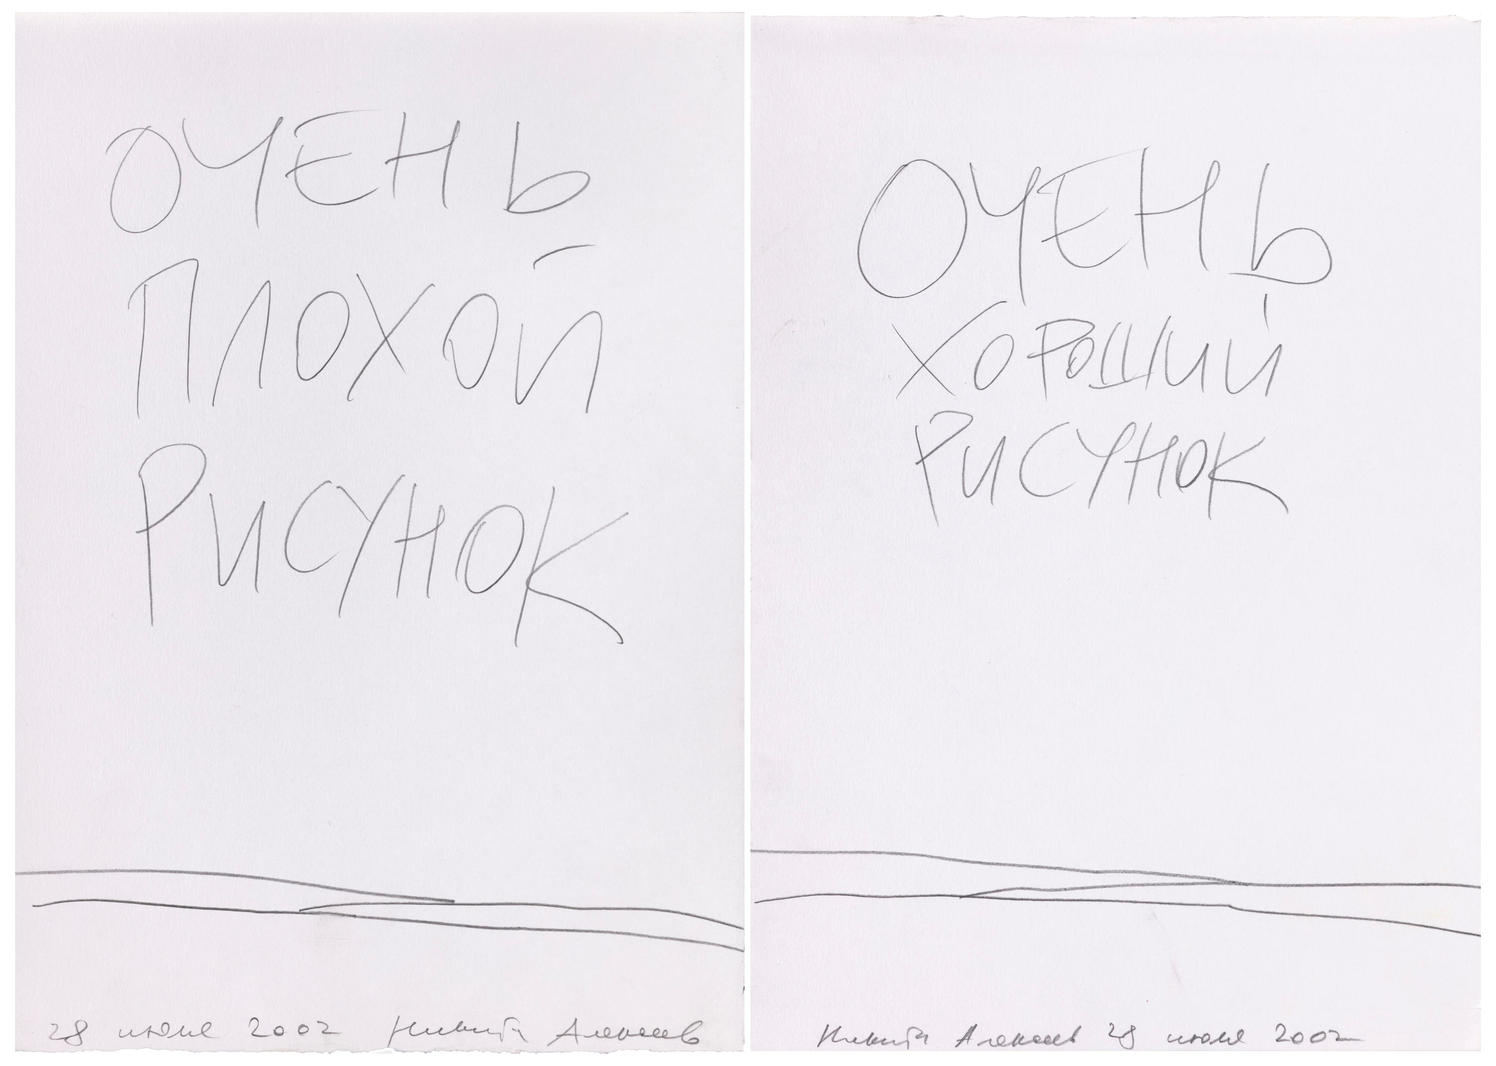 ОЧЕНЬ
ПЛОХОЙ
РИСУНОК
28 июля 2002 Никита Алексеев
ОЧЕНЬ
ХОРОШИЙ
РИСУНОК
Никита Алексеев 28 июля 2002